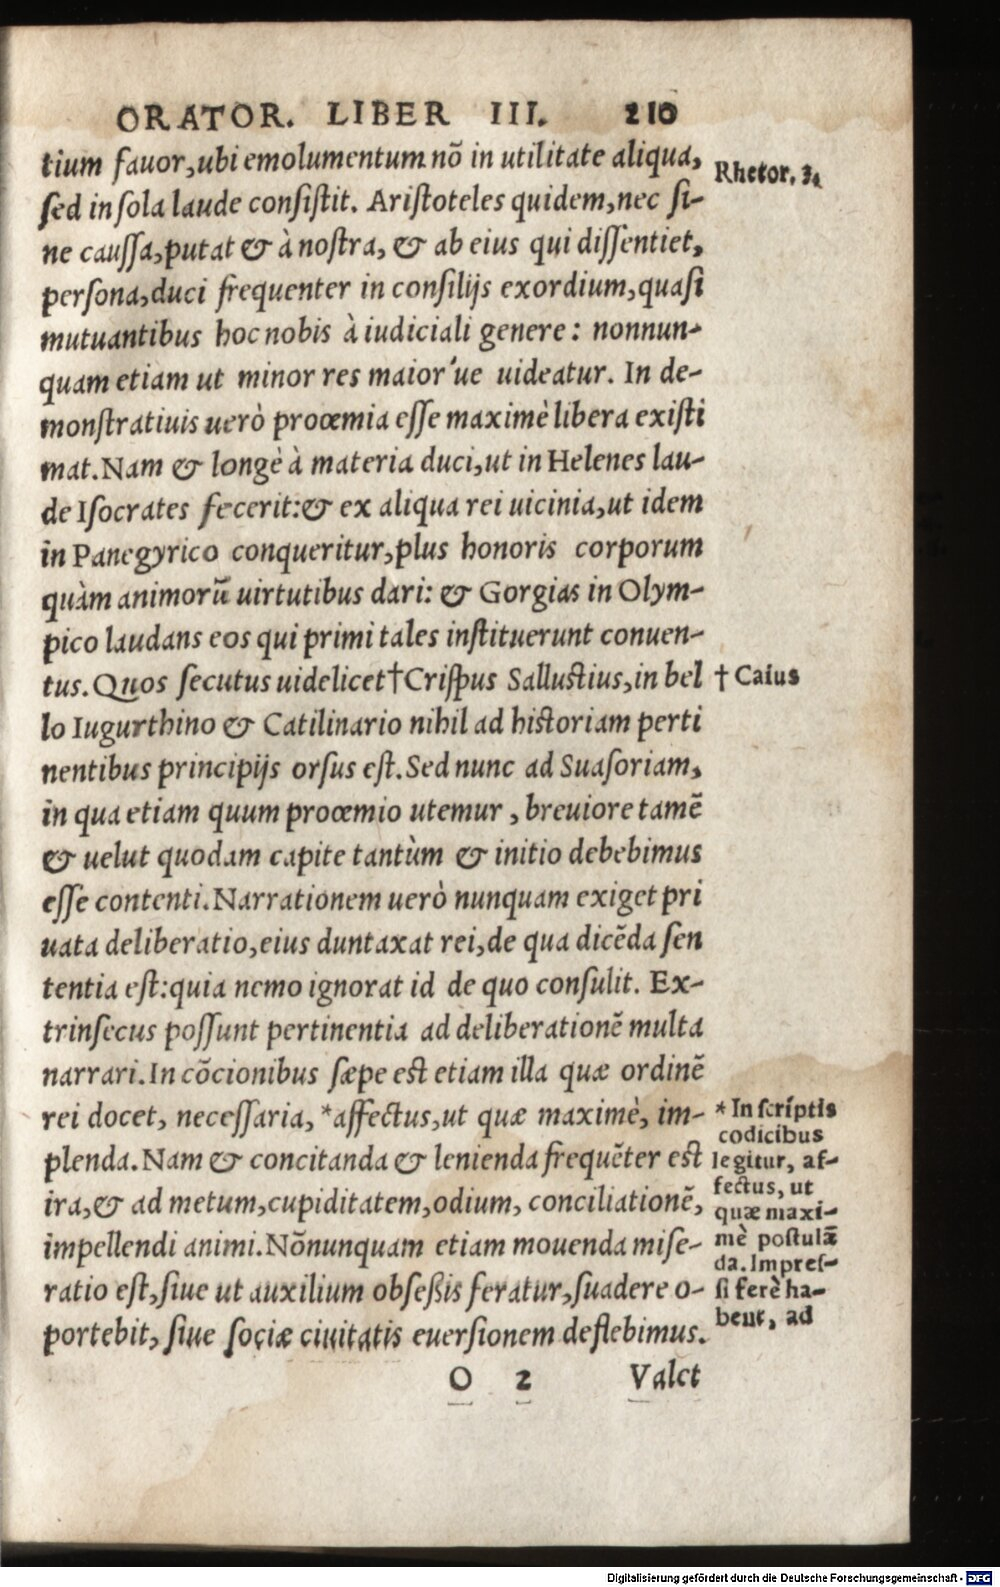 ORATOR. LIBER III. 210
tium fauor, ubi emolumentum nõ in utilitate aliqua,
Rhetor. 3.
sed in sola laude consistit. Aristoteles quidem, nec si-
ne caussa, putat & à nostra, & ab eius qui dissentiet,
persona, duci frequenter in consilijs exordium, quasi
mutuantibus hoc nobis à iudiciali genere: nonnun-
quam etiam ut minor res maior'ue uideatur. In de-
monstratiuis uerò proœmia esse maximè libera existi
mat. Nam & longè à materia duci, ut in Helenes lau-
de Isocrates fecerit: & ex aliqua rei uicinia, ut idem
in Panegyrico conqueritur, plus honoris corporum
quàm animorũ uirtutibus dari: & Gorgias in Olym-
pico laudans eos qui primi tales instituerunt conuen-
tus. Quos secutus uidelicet † Crispus Sallustius, in bel
† Caius
lo Iugurthino & Catilinario nihil ad historiam perti
nentibus principijs orsus est. Sed nunc ad Suasoriam,
in qua etiam quum proœmio utemur, breuiore tamẽ
& uelut quodam capite tantùm & initio debebimus
esse contenti. Narrationem uerò nunquam exiget pri
uata deliberatio, eius duntaxat rei, de qua dicẽda sen
tentia est: quia nemo ignorat id de quo consulit. Ex-
trinsecus possunt pertinentia ad deliberationẽ multa
narrari. In cõcionibus sæpe est etiam illa quæ ordinẽ
rei docet, necessaria, *affectus, ut quæ maximè, im-
plenda. Nam & concitanda & lenienda frequẽter est
ira, & ad metum, cupiditatem, odium, conciliationẽ,
impellendi animi. Nõnunquam etiam mouenda mise-
ratio est, siue ut auxilium obsessis feratur, suadere o-
portebit, siue sociæ ciuitatis euersionem deflebimus.
* In scriptis
codicibus
legitur, af-
fectus, ut
quæ maxi-
mè postulã
da. Impres-
si ferè ha-
bent, ad
O 2 Valet
Digitalisierung gefördert durch die Deutsche Forschungsgemeinschaft - DFG